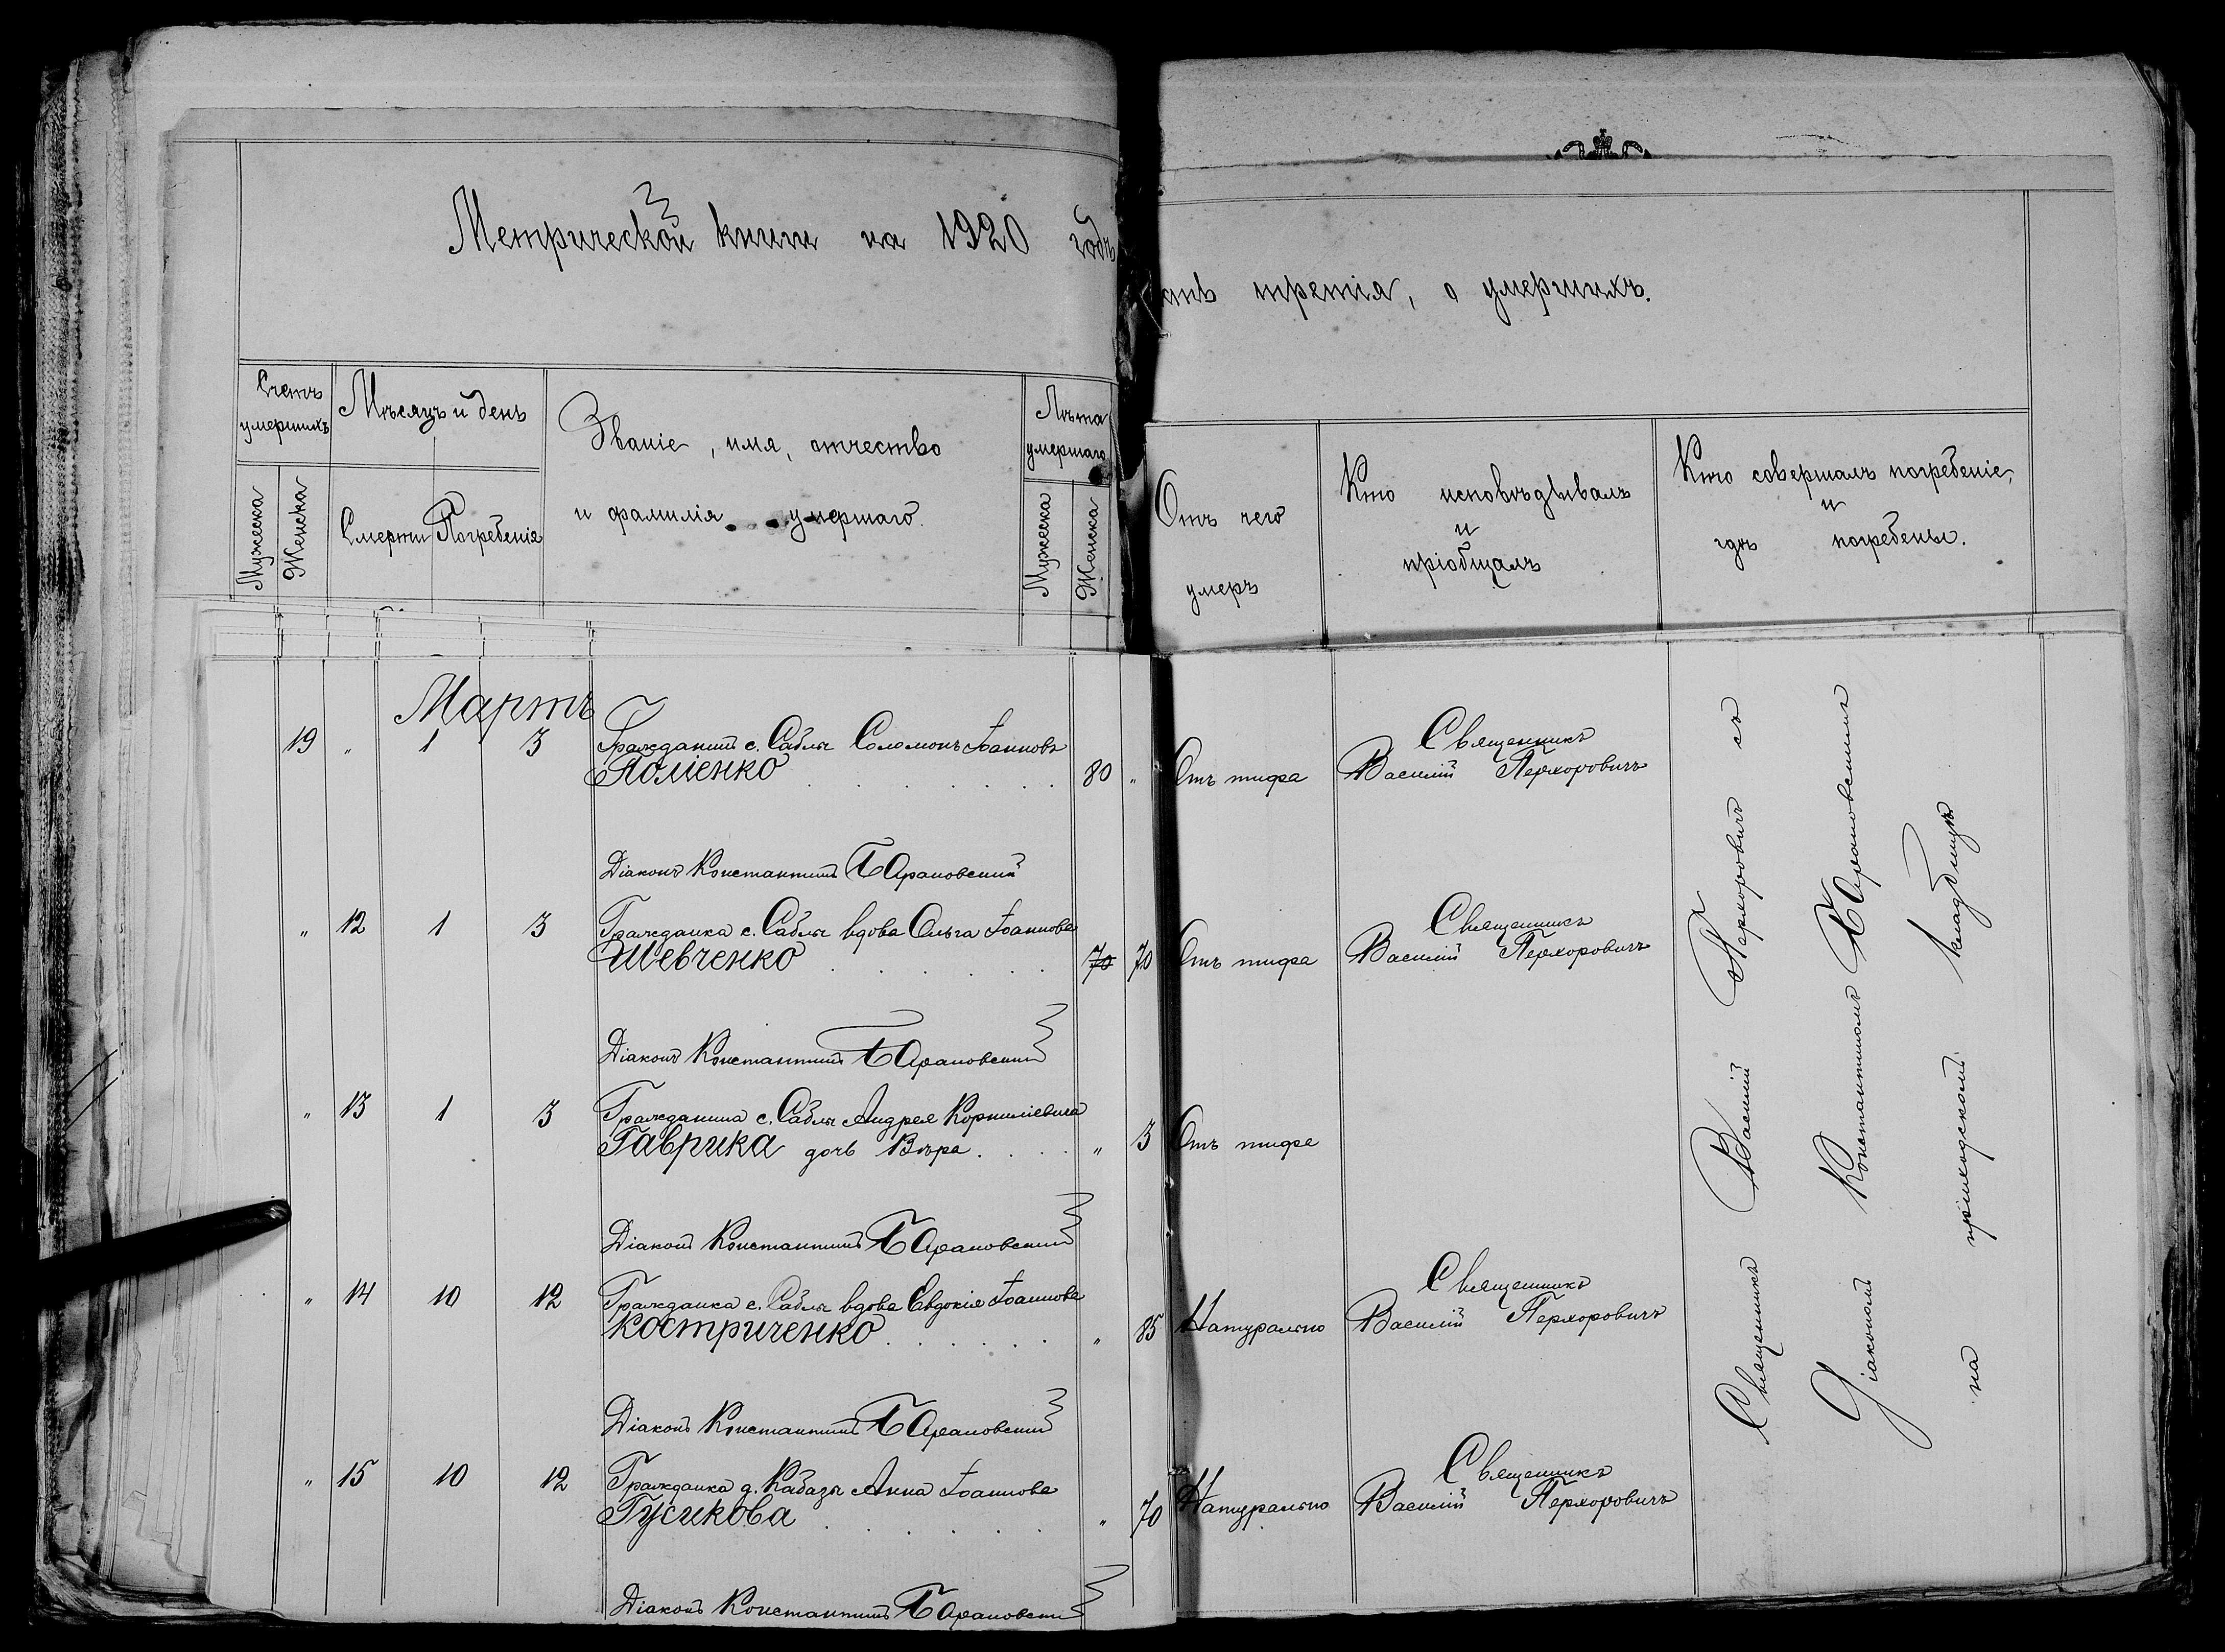 Метрической книги на 1920 годъ
третія, о умершихъ.
Счетъ умершихъ
Мужеска
Женска
Мѣсяцъ и день
Смерти
Погребенія
Званіе, имя, отчество
и фамилія умершаго.
Лѣта умершаго
Мужеска
Женска
Отъ чего
умеръ
Кто исповѣдывалъ
и
пріобщалъ
Кто совершалъ погребеніе,
и
гдѣ погребены.
Мартъ
19 " 1 3 Гражданинъ с. Саблы Соломонъ Іоанновъ
80 " Отъ тифа Священникъ
Василій Перхоровичъ
Діаконъ Константинъ Барановскій
" 12 1 3 Гражданка с. Саблы вдова Ольга Іоаннова
Шевченко 70 70 Отъ тифа Священникъ
Василій Перхоровичъ
Діаконъ Константинъ Барановскій
" 13 1 3 Гражданина с. Саблы Андрея Корниліевича
Гаврика дочь Вѣра " 3 Отъ тифа
Діаконъ Константинъ Барановскій
" 14 10 12 Гражданка с. Саблы вдова Евдокія Іоаннова
Костриченко " 85 Натурально Священникъ
Василій Перхоровичъ
Діаконъ Константинъ Барановскій
" 15 10 12 Гражданка д. Кабазы Анна Іоаннова
Гусикова " 70 Натурально Священникъ
Василій Перхоровичъ
Діаконъ Константинъ Барановскій
Священникъ Василій Перхоровичъ съ
Діакономъ Константиномъ Барановскимъ
на приходскомъ кладбищѣ